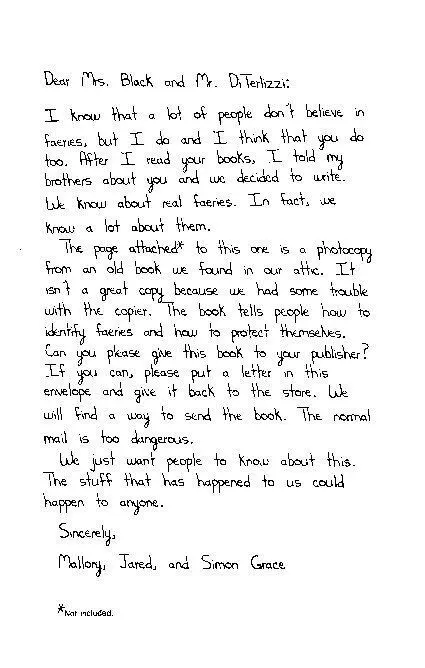 Dear Mrs. Black and Mr. DiTerlizzi:
I know that a lot of people don't believe in
faeries, but I do and I think that you do
too. After I read your books, I told my
brothers about you and we decided to write.
We know about real faeries. In fact, we
know a lot about them.
The page attached* to this one is a photocopy
from an old book we found in our attic. It
isn't a great copy because we had some trouble
with the copier. The book tells people how to
identify faeries and how to protect themselves.
Can you please give this book to your publisher?
If you can, please put a letter in this
envelope and give it back to the store. We
will find a way to send the book. The normal
mail is too dangerous.
We just want people to know about this.
The stuff that has happened to us could
happen to anyone.
Sincerely,
Mallory, Jared, and Simon Grace
*Not included.